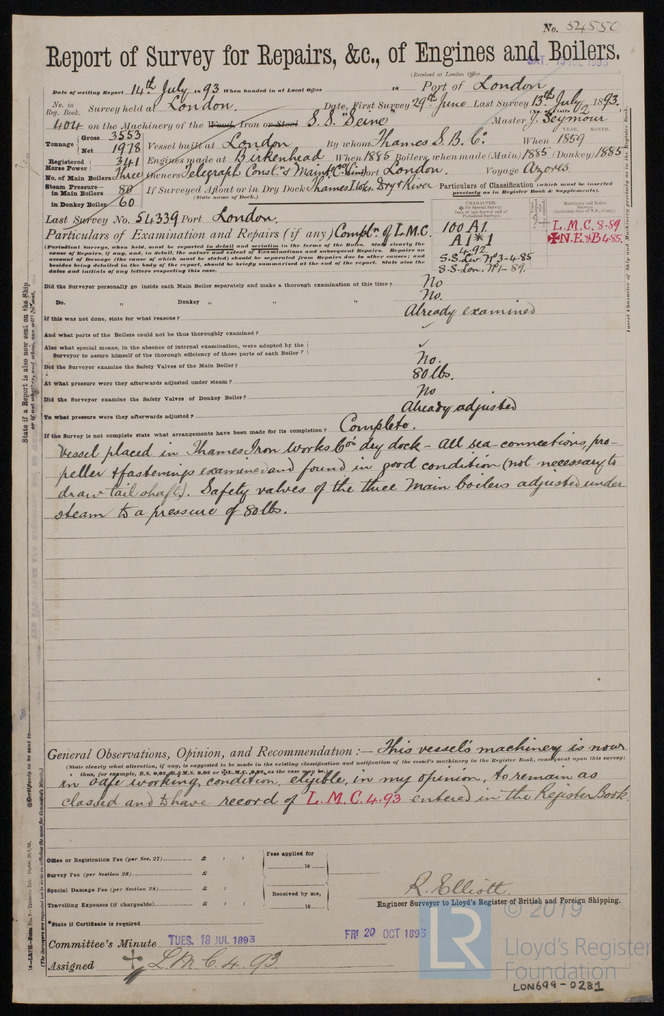 No. 54550
Report of Survey for Repairs, &c., of Engines and Boilers.
(Received at London Office
SAT. 15 JUL 1893
Date of writing Report 14th July 1893 When handed in at Local Office 18 Port of London
No. in Reg. Book. Survey held at London. Date, First Survey 29th June Last Survey 13th July 1893.
404 on the Machinery of the Wood, Iron or Steel S.S. "Seine" Master J. Seymour
Tonnage Gross 3553 Net 1978 Vessel built at London By whom Thames S.B. Co. When 1859
Registered Horse Power 341 Engines made at Birkenhead When 1885 Boilers, when made (Main) 1885 (Donkey) 1885
No. of Main Boilers Three Owners Telegraph Const. & Maint. Co. Lim Port London. Voyage Azores.
Steam Pressure in Main Boilers 80 If Surveyed Afloat or in Dry Dock Thames I. Wks. Dry & River
in Donkey Boiler 60 (State name of Dock.)
Particulars of Classification (which must be inserted precisely as in Register Book & Supplements).
Last Survey No. 54339 Port London.
Particulars of Examination and Repairs (if any) Compln. of L.M.C.
100 A1.
A1*1
4.92
S.S. Liv. No. 3-4.85
S.S. Lon. No. 1-89.
L.M.C. 8.89
N.E.&B 4.85.
(Periodical Surveys, when held, must be reported in detail and seriatim in the terms of the Rules. State clearly the
cause of Repairs, if any, and, in detail, the nature and extent of Examinations and subsequent Repairs. Repairs on
account of Damage (the cause of which must be stated) should be separated from Repairs due to other causes; and
besides being detailed in the body of the report, should be briefly summarised at the end of the report. State also the
dates and initials of any letters respecting this case.
Did the Surveyor personally go inside each Main Boiler separately and make a thorough examination at this time? No
Do. " Donkey " " " No.
If this was not done, state for what reasons? Already examined
And what parts of the Boilers could not be thus thoroughly examined?
Also what special means, in the absence of internal examination, were adopted by the
Surveyor to assure himself of the thorough efficiency of those parts of each Boiler?
Did the Surveyor examine the Safety Valves of the Main Boiler? No.
At what pressure were they afterwards adjusted under steam? 80 lbs.
Did the Surveyor examine the Safety Valves of Donkey Boiler? No
To what pressure were they afterwards adjusted? Already adjusted
If the Survey is not complete state what arrangements have been made for its completion? Complete.
Vessel placed in Thames Iron Works Cos dry dock - All sea-connections, pro-
peller & fastenings examined and found in good condition (not necessary to
draw tail shaft). Safety valves of the three Main boilers adjusted under
steam to a pressure of 80 lbs.
General Observations, Opinion, and Recommendation:— This vessel's machinery is now
(State clearly what alteration, if any, is suggested to be made in the existing classification and notification of the vessel's machinery in the Register Book, consequent upon this survey;
in safe working condition, eligible, in my opinion, to remain as
classed and to have record of L.M.C. 4.93 entered in the Register Book.
Office or Registration Fee (per Sec. 27) £ : :
Survey Fee (per Section 28) £
Special Damage Fee (per Section 28) £ : :
Travelling Expenses (if chargeable) £ : :
Fees applied for
18
Received by me,
18
*State if Certificate is required
R. Elliott.
Engineer Surveyor to Lloyd's Register of British and Foreign Shipping.
Committee's Minute TUES. 18 JUL 1893 FRI 20 OCT 1893
Assigned + L.M.C. 4.93.
LR
© 2019
Lloyd's Register
Foundation
LON699-0281